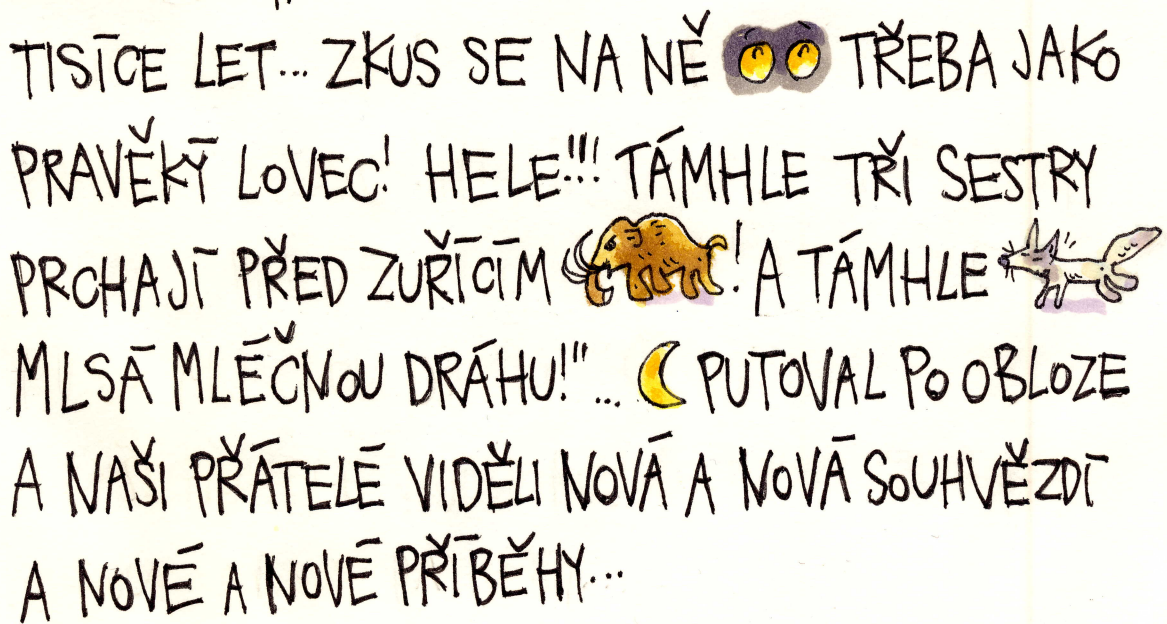 TISÍCE LET... ZKUS SE NA NĚ TŘEBA JAKO
PRAVĚKÝ LOVEC! HELE!!! TÁMHLE TŘI SESTRY
PRCHAJÍ PŘED ZUŘÍCÍM ! A TÁMHLE
MLSÁ MLÉČNOU DRÁHU!"... PUTOVAL PO OBLOZE
A NAŠI PŘÁTELÉ VIDĚLI NOVÁ A NOVÁ SOUHVĚZDÍ
A NOVÉ A NOVÉ PŘÍBĚHY...